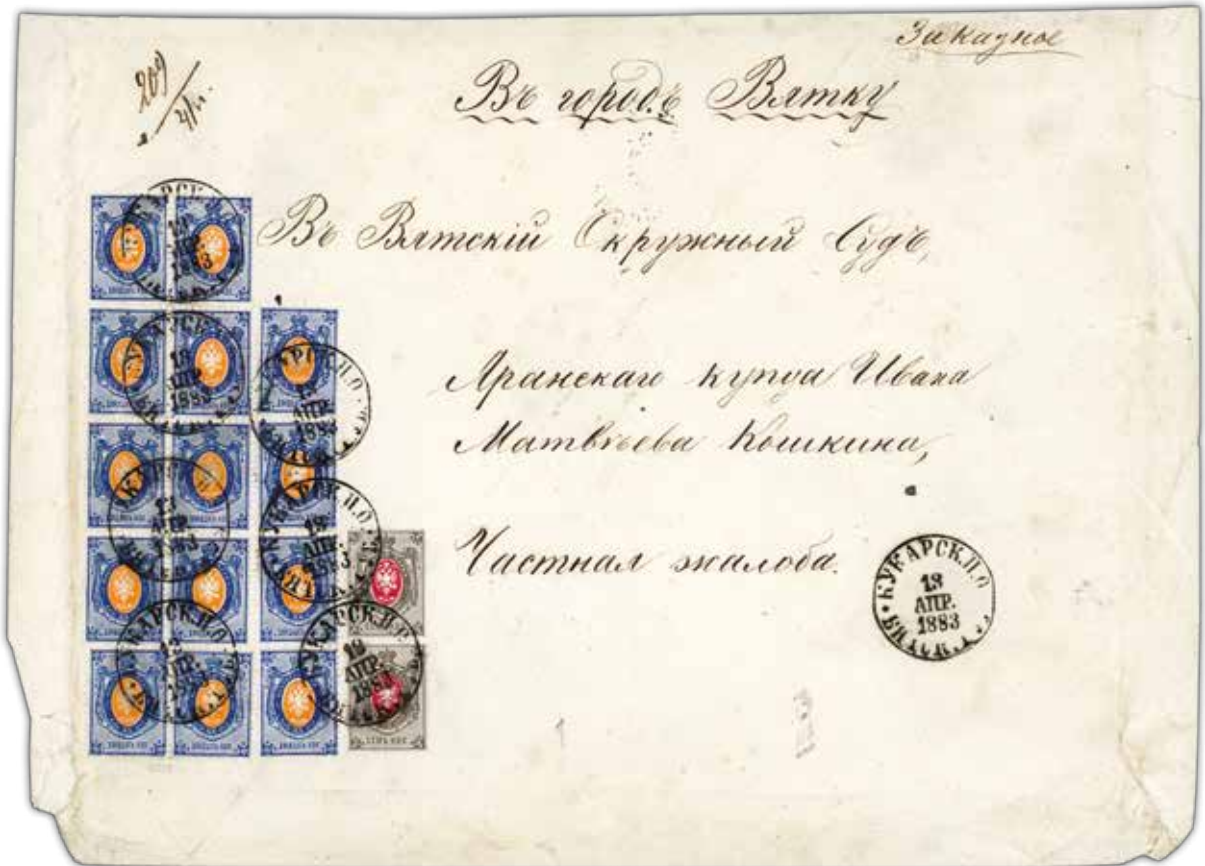 Заказное
209
Въ городъ Вятку
Въ Вятскiй Окружный Судъ,
Яранскаго купца Ивана
Матвѣева Кошкина,
Частная жалоба.
КУКАРСК.П.О
13
АПР.
1883
ВЯТСК.Г.